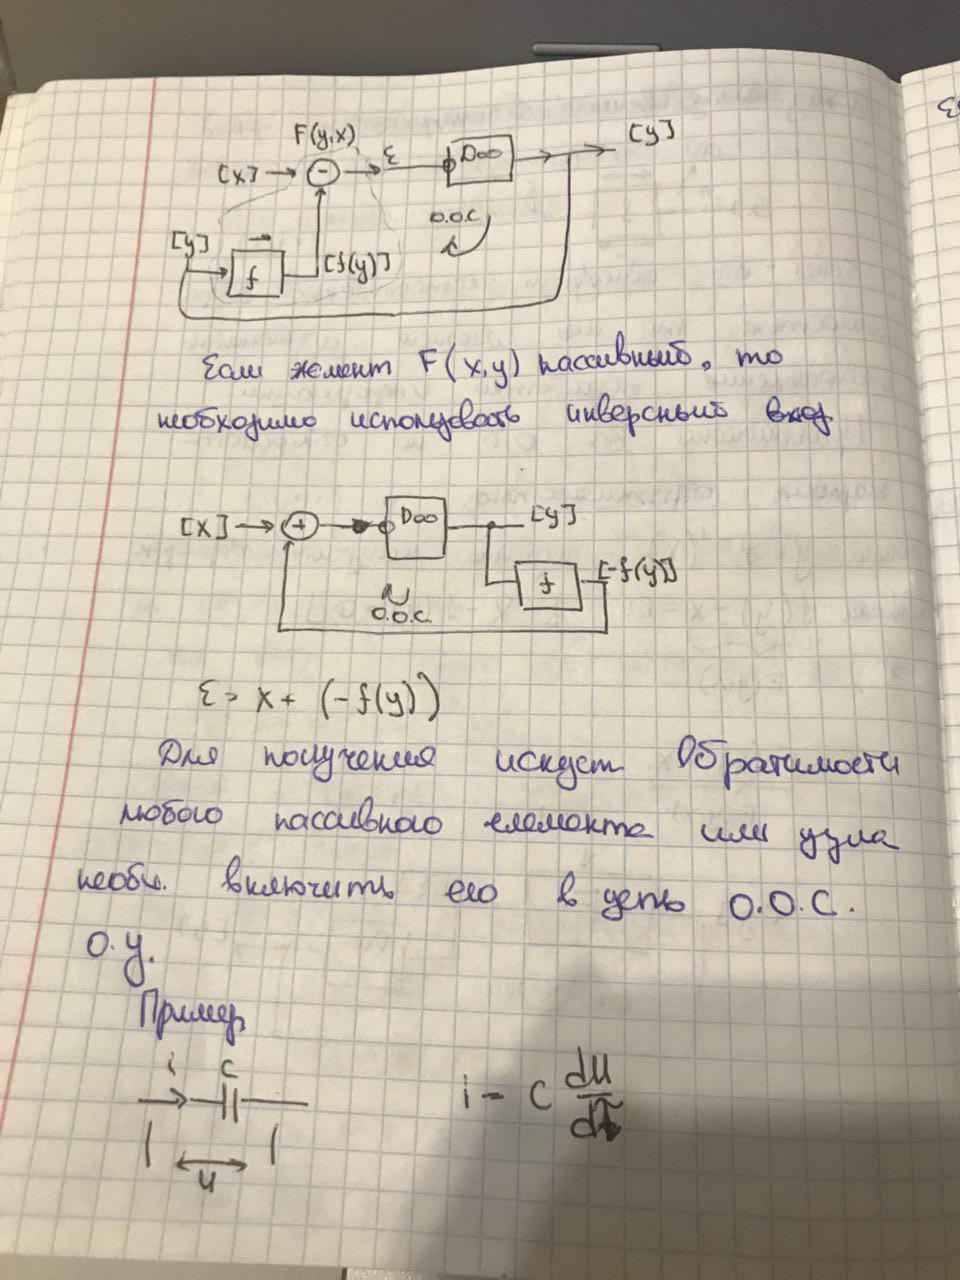 F(y,x)
[x] - ε D∞ [y]
о.о.с
[y] f [f(y)]
Если элемент F(x,y) пассивный, то
необходимо использовать инверсный вход
[x] + D∞ [y]
f [-f(y)]
о.о.с.
ε = x + (-f(y))
Для получения искуст обратимости
любого пассивного елемента или узла
необх. включить его в цепь О.О.С.
О.У.
Пример
i C
u
i = C du/dt